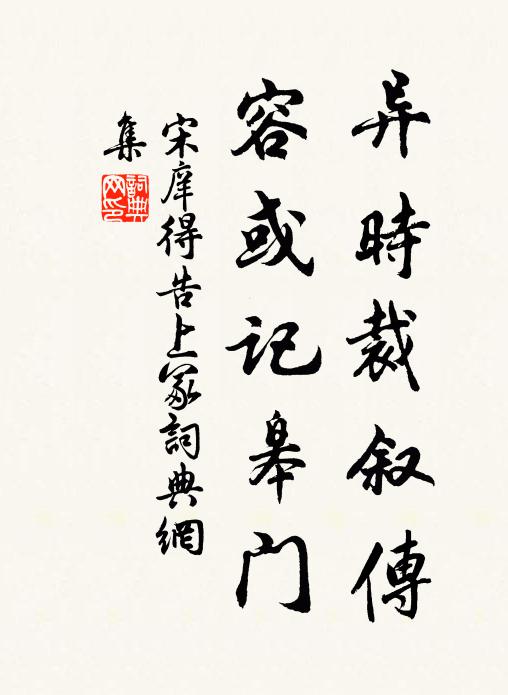 异時裁叙傳
容或記皋門
宋庠得告上冢詞典網
集
詞典網印